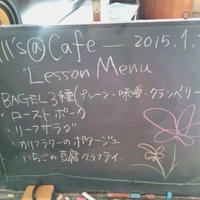 ll's@Cafe — 2015.1.
Lesson Menu
BAGEL3種(プレーン・味噌・クランベリー
・ローストポーク
・リーフサラダ
・カリフラワーのポタージュ
・いちごの豆腐クラフティ